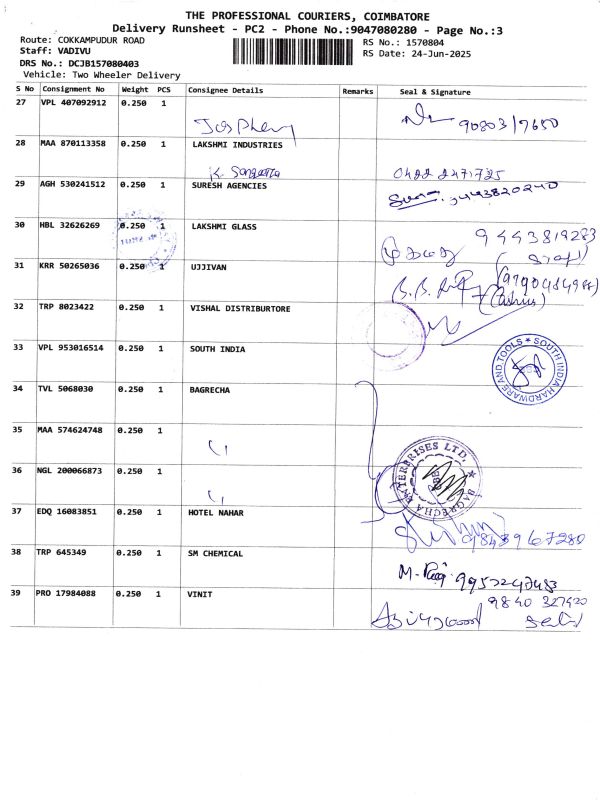 THE PROFESSIONAL COURIERS, COIMBATORE
Delivery Runsheet - PC2 - Phone No.:9047080280 - Page No.:3
Route: COKKAMPUDUR ROAD
RS No.: 1570804
Staff: VADIVU
RS Date: 24-Jun-2025
DRS No.: DCJB157080403
Vehicle: Two Wheeler Delivery
S No Consignment No Weight PCS Consignee Details Remarks Seal & Signature
27 VPL 407092912 0.250 1
90803
28 MAA 870113358 0.250 1 LAKSHMI INDUSTRIES
K. Sangeetha 0422 2471725
29 AGH 530241512 0.250 1 SURESH AGENCIES
9443820240
30 HBL 32626269 0.250 1 LAKSHMI GLASS
9443819283
31 KRR 50265036 0.250 1 UJJIVAN
32 TRP 8023422 0.250 1 VISHAL DISTRIBURTORE
33 VPL 953016514 0.250 1 SOUTH INDIA
SOUTH INDIA HARDWARE AND TOOLS
34 TVL 5068030 0.250 1 BAGRECHA
35 MAA 574624748 0.250 1
BAGRECHA ENTERPRISES LTD.
36 NGL 200066873 0.250 1
37 EDQ 16083851 0.250 1 HOTEL NAHAR
9843967280
38 TRP 645349 0.250 1 SM CHEMICAL
9952247483
39 PRO 17984088 0.250 1 VINIT
9840 327420